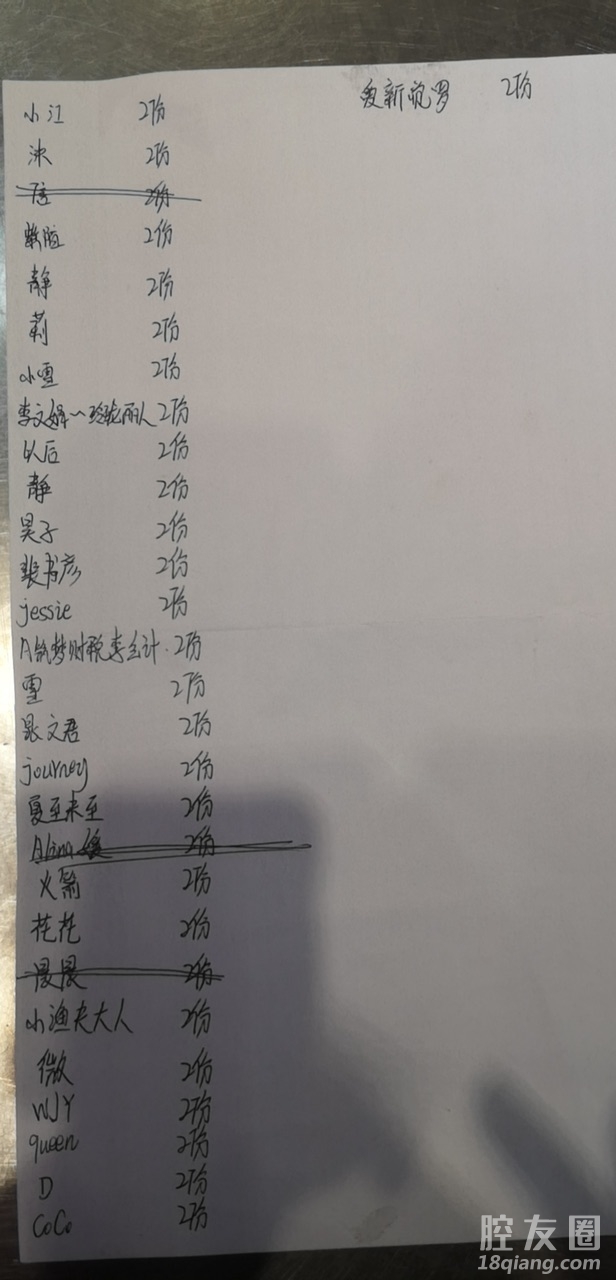 小江 2份
爱新觉罗 2份
冰 2份
2份
2份
静 2份
莉 2份
小雪 2份
李文娟~玲珑丽人 2份
以后 2份
静 2份
昊子 2份
裴书彦 2份
jessie 2份
A筑梦财税李会计. 2份
雪 2份
文君 2份
journey 2份
夏至未至 2份
Alina 2份
火箭 2份
花花 2份
晨晨 2份
小渔夫大人 2份
微 2份
WJY 2份
queen 2份
D 2份
CoCo 2份
腔友圈
18qiang.com